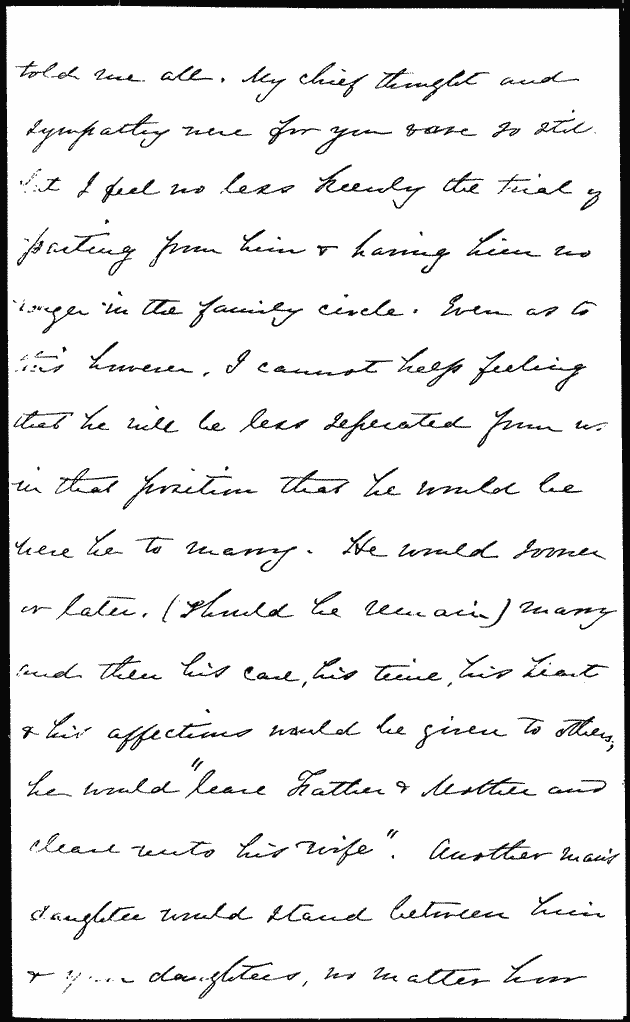 told me all. My chief thought and
sympathy were for you & are so still.
But I feel no less keenly the trial of
parting from him & having him no
longer in the family circle. Even as to
this however, I cannot help feeling
that he will be less seperated from us
in that position that he would be
were he to marry. He would sooner
or later. (Should he remain) marry
and then his care, his time, his heart
& his affections would be given to others;
he would "leave Father & Mother and
cleave unto his wife". Another man's
daughter would stand between him
& your daughters, no matter how